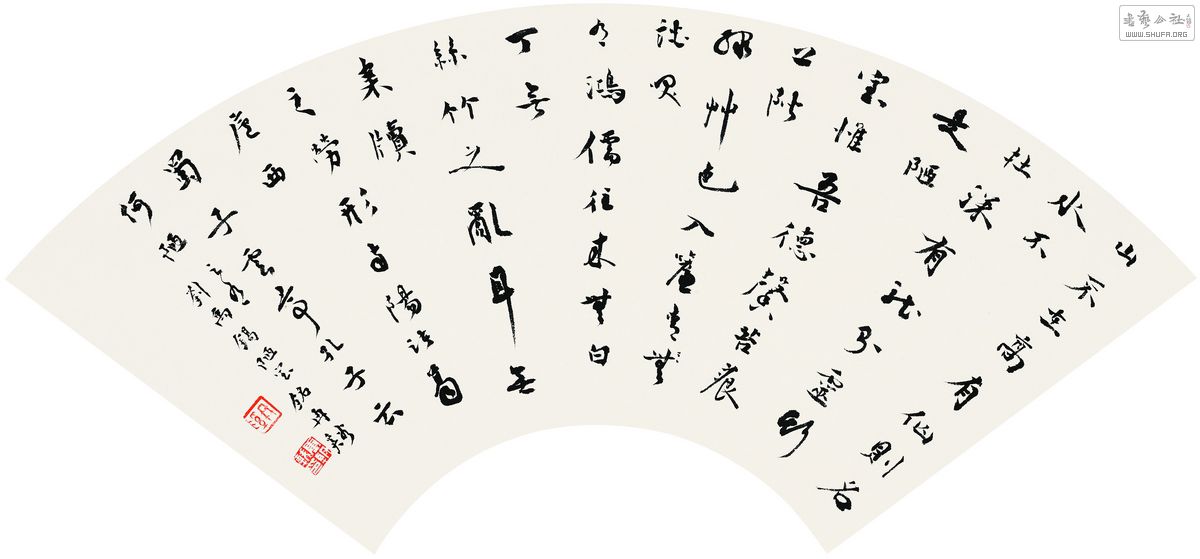 山不在高有仙則名
水不
在深有龍則靈斯
是陋
室惟吾德馨苔痕
上階
綠艸色入簾青無
談笑
有鴻儒往來無白
丁無
絲竹之亂耳無
案牘
之勞形南陽諸葛
廬西
蜀子雲亭孔子云
何陋
之有
劉禹錫陋室銘冉
書藝公社
WWW.SHUFA.ORG